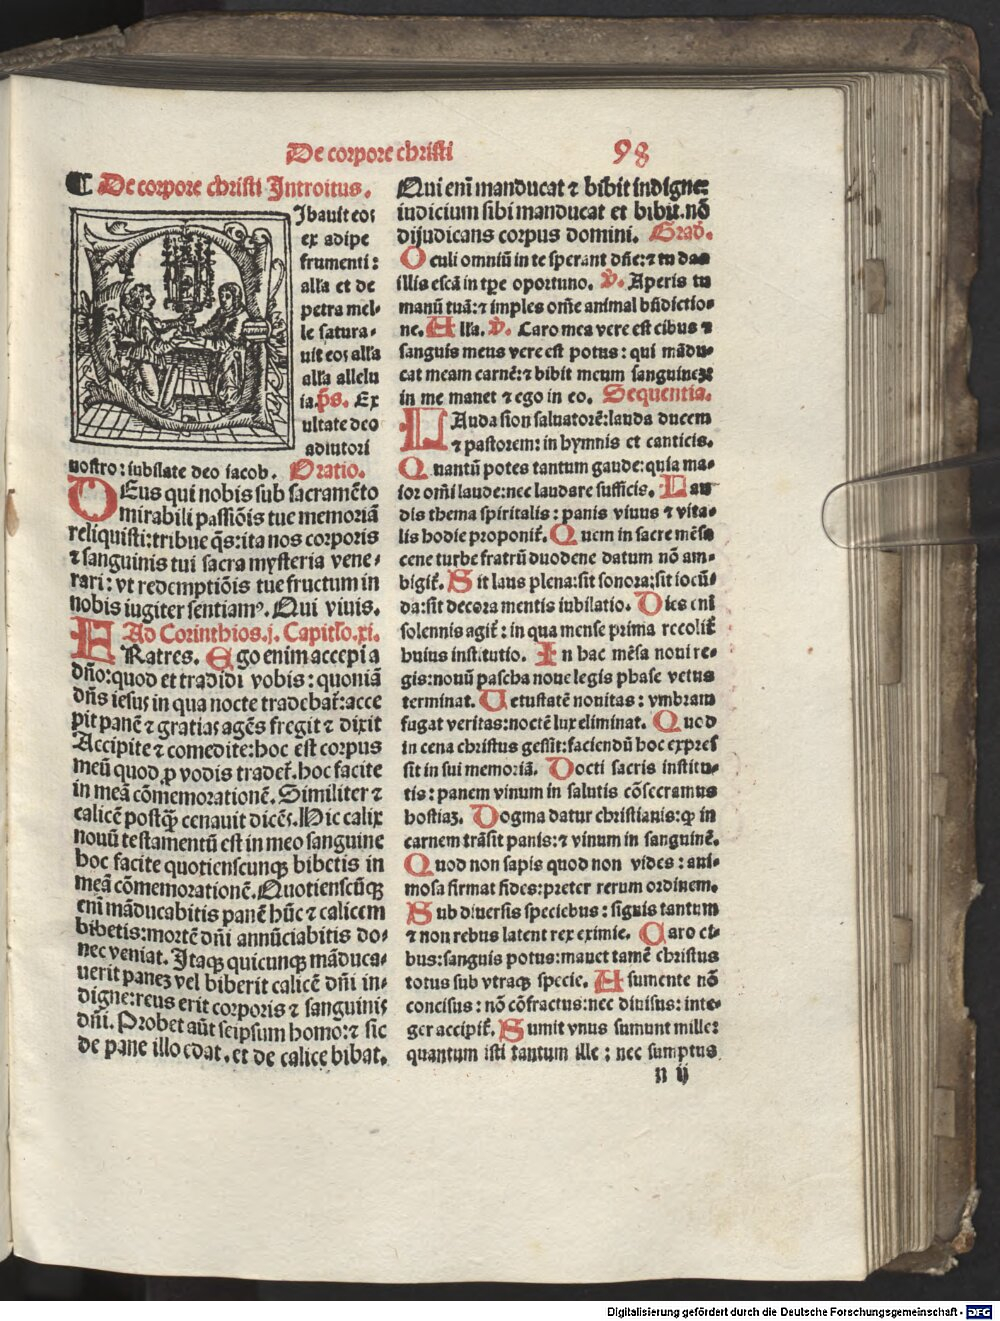 De corpore christi 98
¶ De corpore christi Introitus.
Ibauit eos
ex adipe
frumenti:
alľa et de
petra mel-
le satura-
uit eos alľa
alľa allelu
ia. p̄s. Ex
ultate deo
adiutori
nostro: iubilate deo iacob. Oratio.
DEus qui nobis sub sacramēto
mirabili passiōis tue memoriā
reliquisti: tribue q̄s: ita nos corporis
⁊ sanguinis tui sacra mysteria vene-
rari: vt redemptiōis tue fructum in
nobis iugiter sentiamꝰ. Qui viuis.
Ad Corinthios. j. Capitľo. xi.
FRatres. Ego enim accepi a
dño: quod et tradidi vobis: quoniā
dñs iesus in qua nocte tradebať: acce
pit panē ⁊ gratias agēs fregit ⁊ dixit
Accipite ⁊ comedite: hoc est corpus
meū quod ꝓ vobis tradeť. hoc facite
in meā cōmemorationē. Similiter ⁊
calicē postꝙ̄ cenauit dicēs. Hic calix
nouū testamentū est in meo sanguine
hoc facite quotienscunqꝫ bibetis in
meā cōmemorationē. Quotienscūqꝫ
eni̅ māducabitis panē hūc ⁊ calicem
bibetis: mortē dñi annūciabitis do-
nec veniat. Itaqꝫ quicunqꝫ māduca-
uerit paneꝫ vel biberit calicē dñi in-
digne: reus erit corporis ⁊ sanguinis
dñi. Probet aūt seipsum homo: ⁊ sic
de pane illo edat. et de calice bibat.
Qui eni̅ manducat ⁊ bibit indigne:
iudicium sibi manducat et bibit. nō
dijudicans corpus domini. Grad̄.
Oculi omniū in te sperant dñe: ⁊ tu das
illis escā in tp̄e oportuno. v̄. Aperis tu
manū tuā: ⁊ imples om̄e animal bñdictio-
ne. Alľa. v̄. Caro mea vere est cibus ⁊
sanguis meus vere est potus: qui mādu-
cat meam carnē: ⁊ bibit meum sanguineꝫ
in me manet ⁊ ego in eo. Sequentia.
LAuda sion saluatorē: lauda ducem
⁊ pastorem: in hymnis et canticis.
Quantū potes tantum gaude: quia ma-
ior om̄i laude: nec laudare sufficis. Lau
dis thema spiritalis: panis viuus ⁊ vita-
lis hodie proponiť. Quem in sacre mēse
cene turbe fratrū duodene datum nō am-
bigiť. Sit laus plena: sit sonora: sit iocū-
da: sit decora mentis iubilatio. Dies eni̅
solennis agiť: in qua mense prima recoliť
huius institutio. In hac mēsa noui re-
gis: nouū pascha noue legis phase vetus
terminat. Uetustatē nouitas: vmbram
fugat veritas: noctē lux eliminat. Quod
in cena christus gessit: faciendū hoc expres
sit in sui memoriā. Docti sacris institu-
tis: panem vinum in salutis cōsecramus
hostiaꝫ. Dogma datur christianis: ꝙ in
carnem trāsit panis: ⁊ vinum in sanguinē.
Quod non sapis quod non vides: ani-
mosa firmat fides: preter rerum ordinem.
Sub diuersis speciebus: signis tantum
⁊ non rebus latent rex eximie. Caro ci-
bus: sanguis potus: manet tamē christus
totus sub vtraqꝫ specie. A sumente nō
concisus: nō cōfractus: nec diuisus: inte-
ger accipiť. Sumit vnus sumunt mille:
quantum isti tantum ille: nec sumptus
n ij
Digitalisierung gefördert durch die Deutsche Forschungsgemeinschaft - DFG